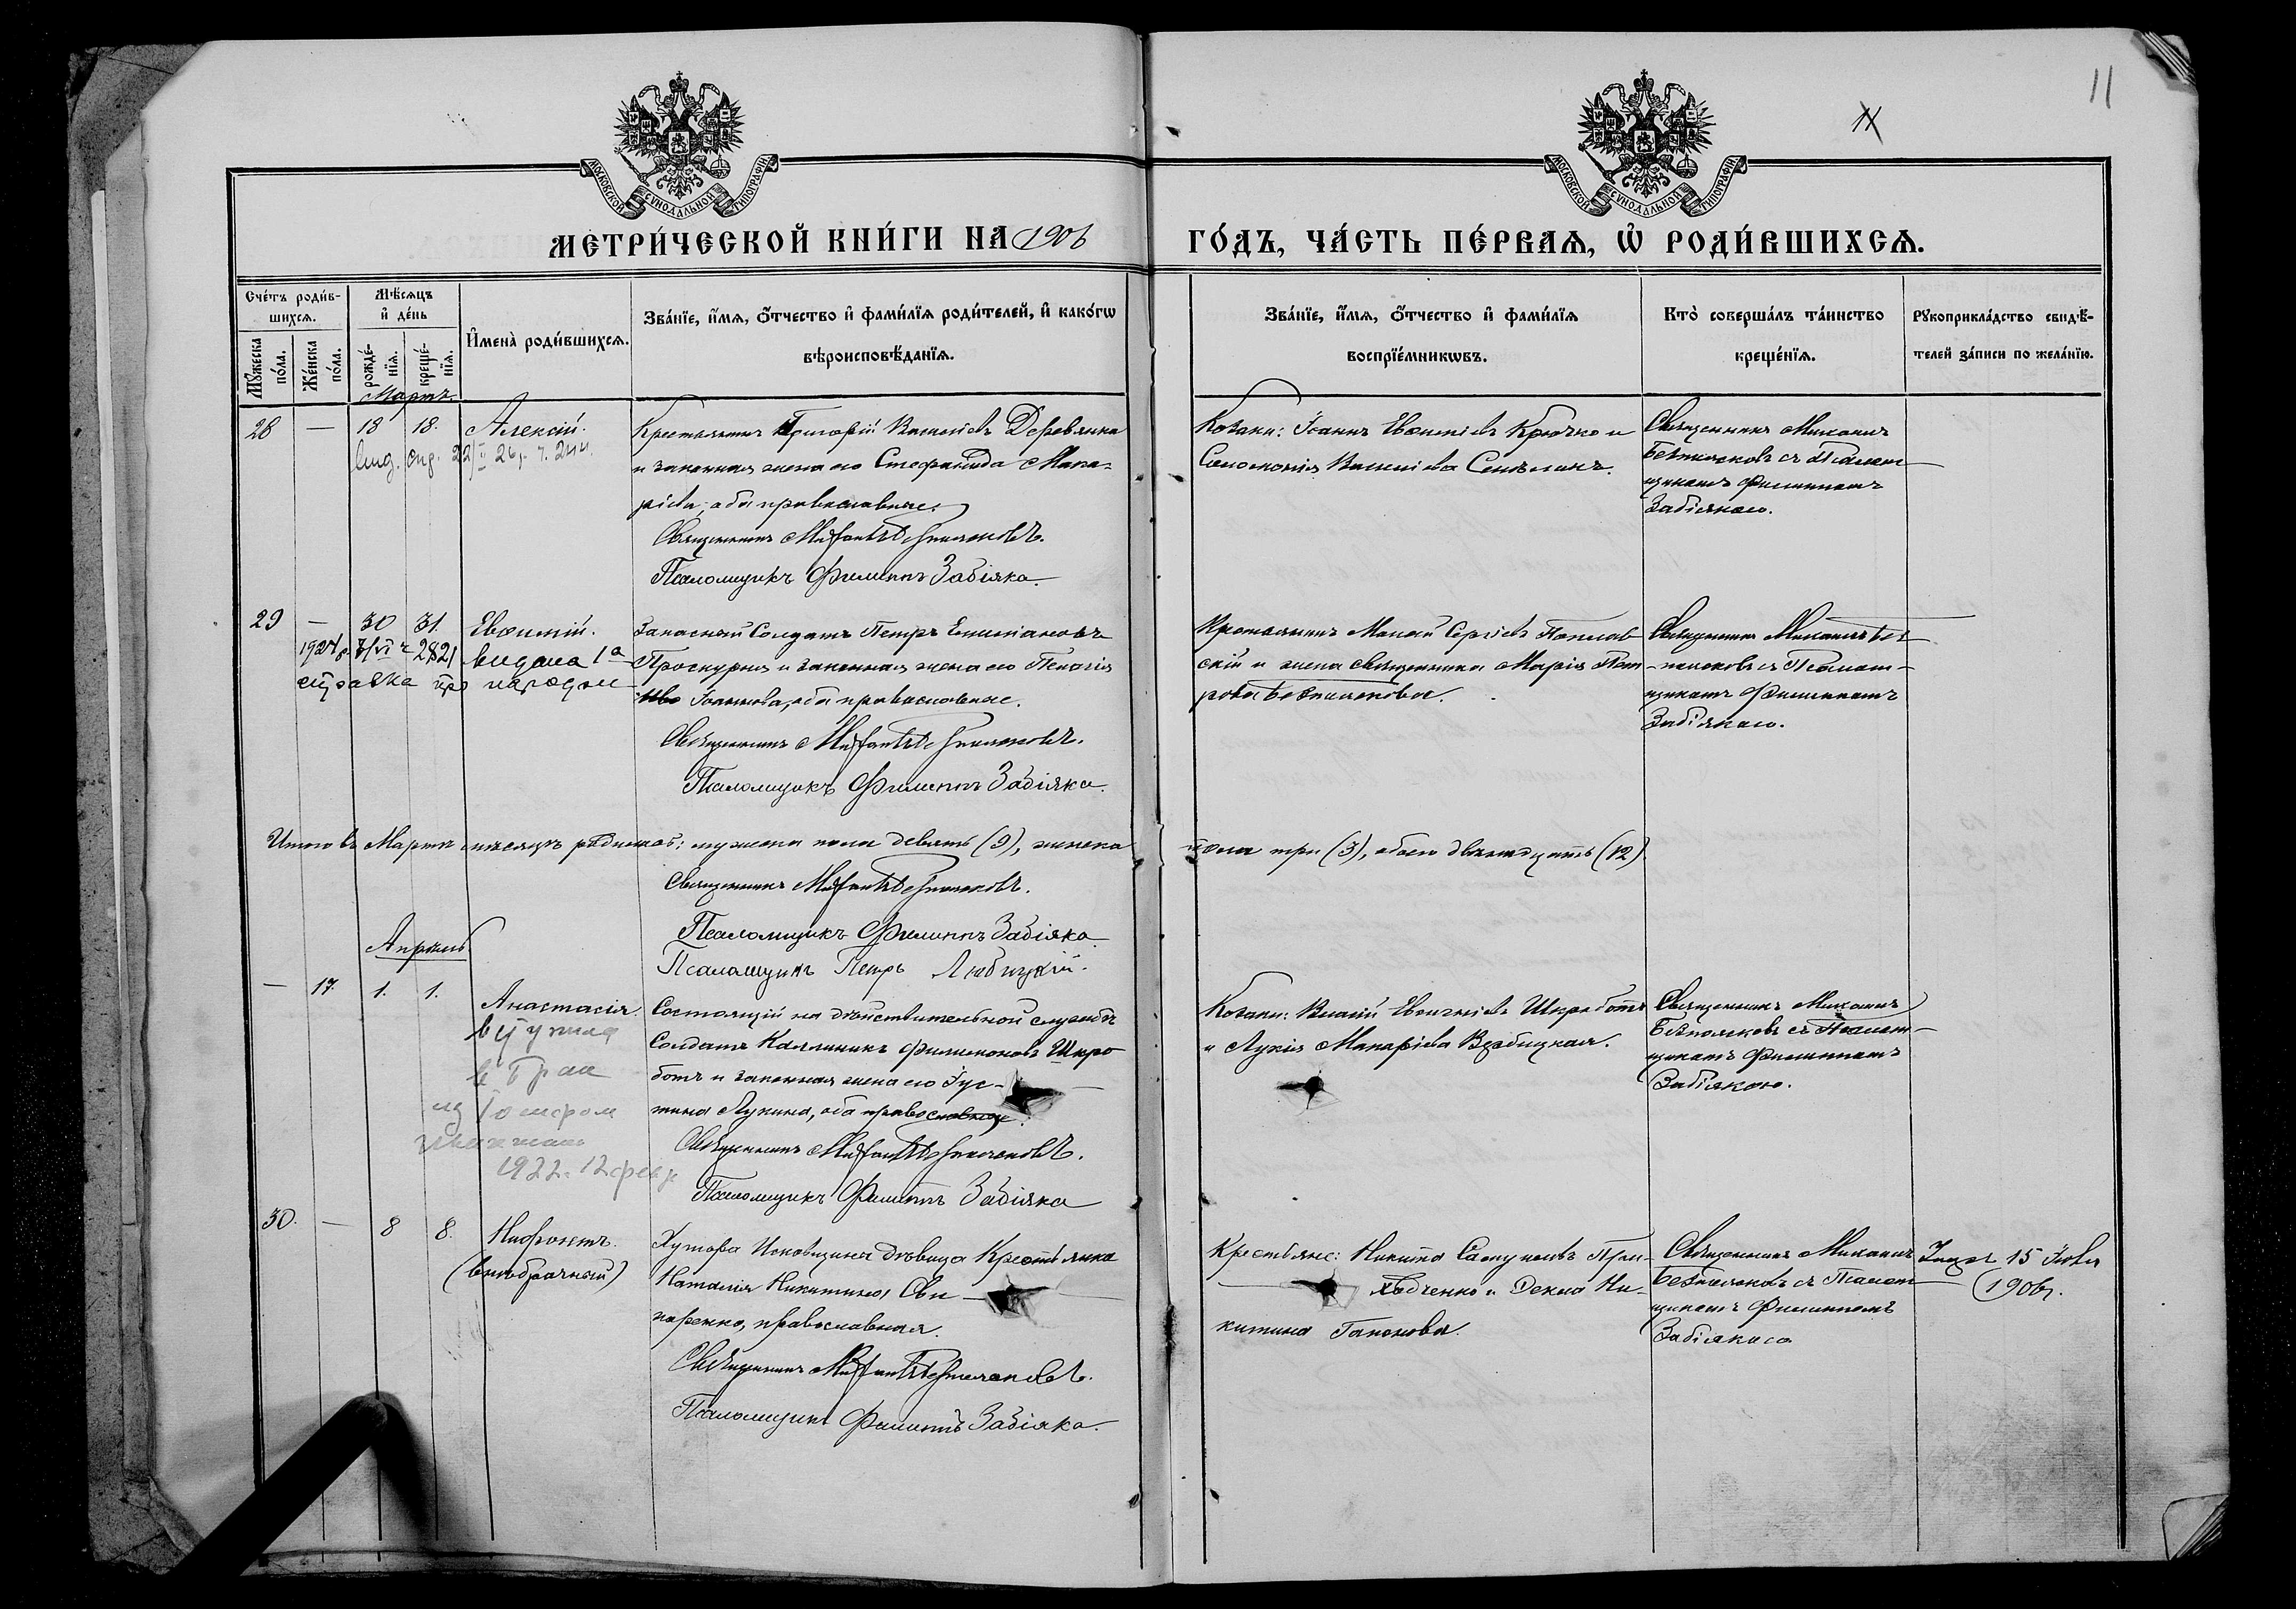 11
МОСКОВСКОЙ СѴНОДАЛЬНОЙ ТИПОГРАФІИ
МОСКОВСКОЙ СѴНОДАЛЬНОЙ ТИПОГРАФІИ
МЕТРИ́ЧЕСКОЙ КНИ́ГИ НА 1906 ГО́ДЪ, ЧА́СТЬ ПЕ́РВАЯ, Ѡ РОДИ́ВШИХСЯ.
Сче́тъ роди́в-
шихся.
Мѣ́сяцъ
и де́нь
Му́жеска по́ла.
Же́нска по́ла.
рожде́-
нїя.
креще́-
нїя.
Имена̀ роди́вшихся.
Зва́нїе, и́мя, о́тчество и фами́лїя роди́телей, и како́гѡ
вѣроисповѣ́данїя.
Зва́нїе, и́мя, о́тчество и фами́лїя
воспрїе́мникѡвъ.
Кто̀ соверша́лъ та́инство
креще́нїя.
Рукоприкла́дство свидѣ́-
телей за́писи по жела́нїю.
Мартъ.
28 — 18 18. Алексій.
Крестьянинъ Григорій Василіевъ Деревянка
и законная жена его Стефанида Мака-
ріева, оба православные.
Священникъ
Псаломщикъ Филиппъ Забіяка.
Козаки: Іоаннъ Евфиміевъ Крючко и
Соломонія Василіева
Священникъ Михаилъ
Безпалковъ съ Псалом-
щикомъ Филиппомъ
Забіякою.
29 — 30 31. Евфимій.
2821 видана 1а
справка про народжен
Запасный Солдатъ Петръ Емиліановъ
Проскурня и законная жена его Пелагія
Іоаннова, оба православные.
Священникъ
Псаломщикъ Филиппъ Забіяка.
Крестьянинъ Мокій Сергіевъ Поплав-
скій и жена священника Марія Пет-
рова Безпалкова.
Священникъ Михаилъ Без-
палковъ съ Псалом-
щикомъ Филиппомъ
Забіякою.
Итого въ Мартѣ мѣсяцѣ родилось: мужеска пола девять (9), женска пола три (3), обоего двѣнадцать (12).
Священникъ
Псаломщикъ Филиппъ Забіяка
Псаломщикъ Петръ Любицкій.
Апрѣль
— 17. 1. 1. Анастасія.
1922. 12 февр
Состоящій на дѣйствительной службѣ
Солдатъ Каллиникъ Филимоновъ Шкро-
ботъ и законная жена его Іус-
тина Лукина, оба православные.
Священникъ
Псаломщикъ Филиппъ Забіяка
Козаки: Власій Евгеніевъ Шкроботъ
и Лукія Макаріева Врабицкая.
Священникъ Михаилъ
Безпалковъ съ Псалом-
щикомъ Филиппомъ
Забіякою.
30. — 8 8. Нифонтъ.
(внѣбрачный)
Хутора дѣвица Крестьянка
Наталія Никитина Сви-
наренко, православная.
Священникъ
Псаломщикъ Филиппъ Забіяка.
Крестьяне: Никита Самуиловъ При-
ходченко и Текла Ни-
китина Гапонова.
Священникъ Михаилъ
Безпалковъ съ Псалом-
щикомъ Филиппомъ
Забіякою
15 Іюля
1906 г.